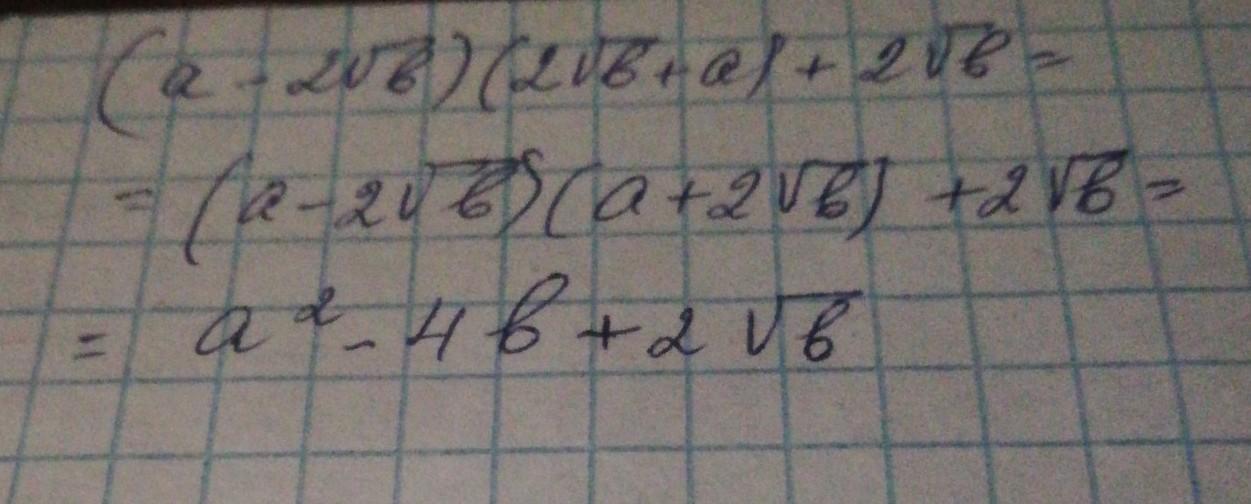 (a - 2√b)(2√b + a) + 2√b =
= (a - 2√b)(a + 2√b) + 2√b =
= a² - 4b + 2√b